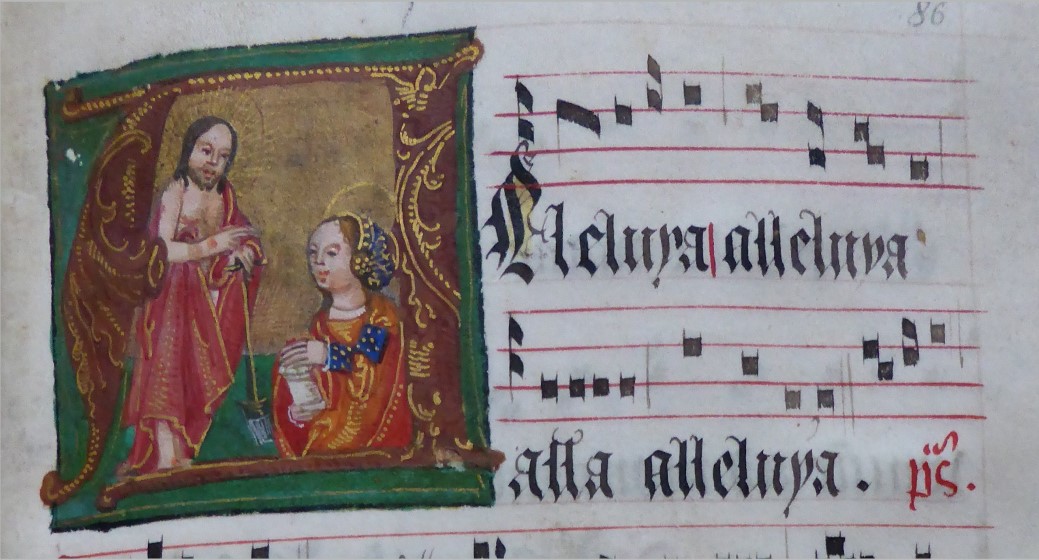 86
ALleluya|alleluya
alla alleluya. ps̄.